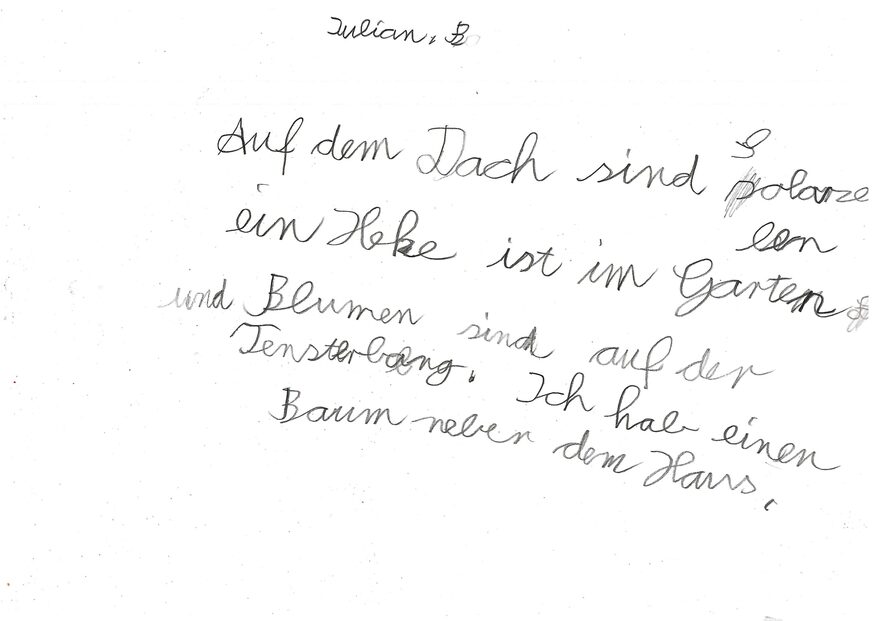 Julian, B
Auf dem Dach sind Solarze
len
ein Heke ist im Garten
und Blumen sind auf der
Fensterbang. Ich hab einen
Baum neben dem Haus.